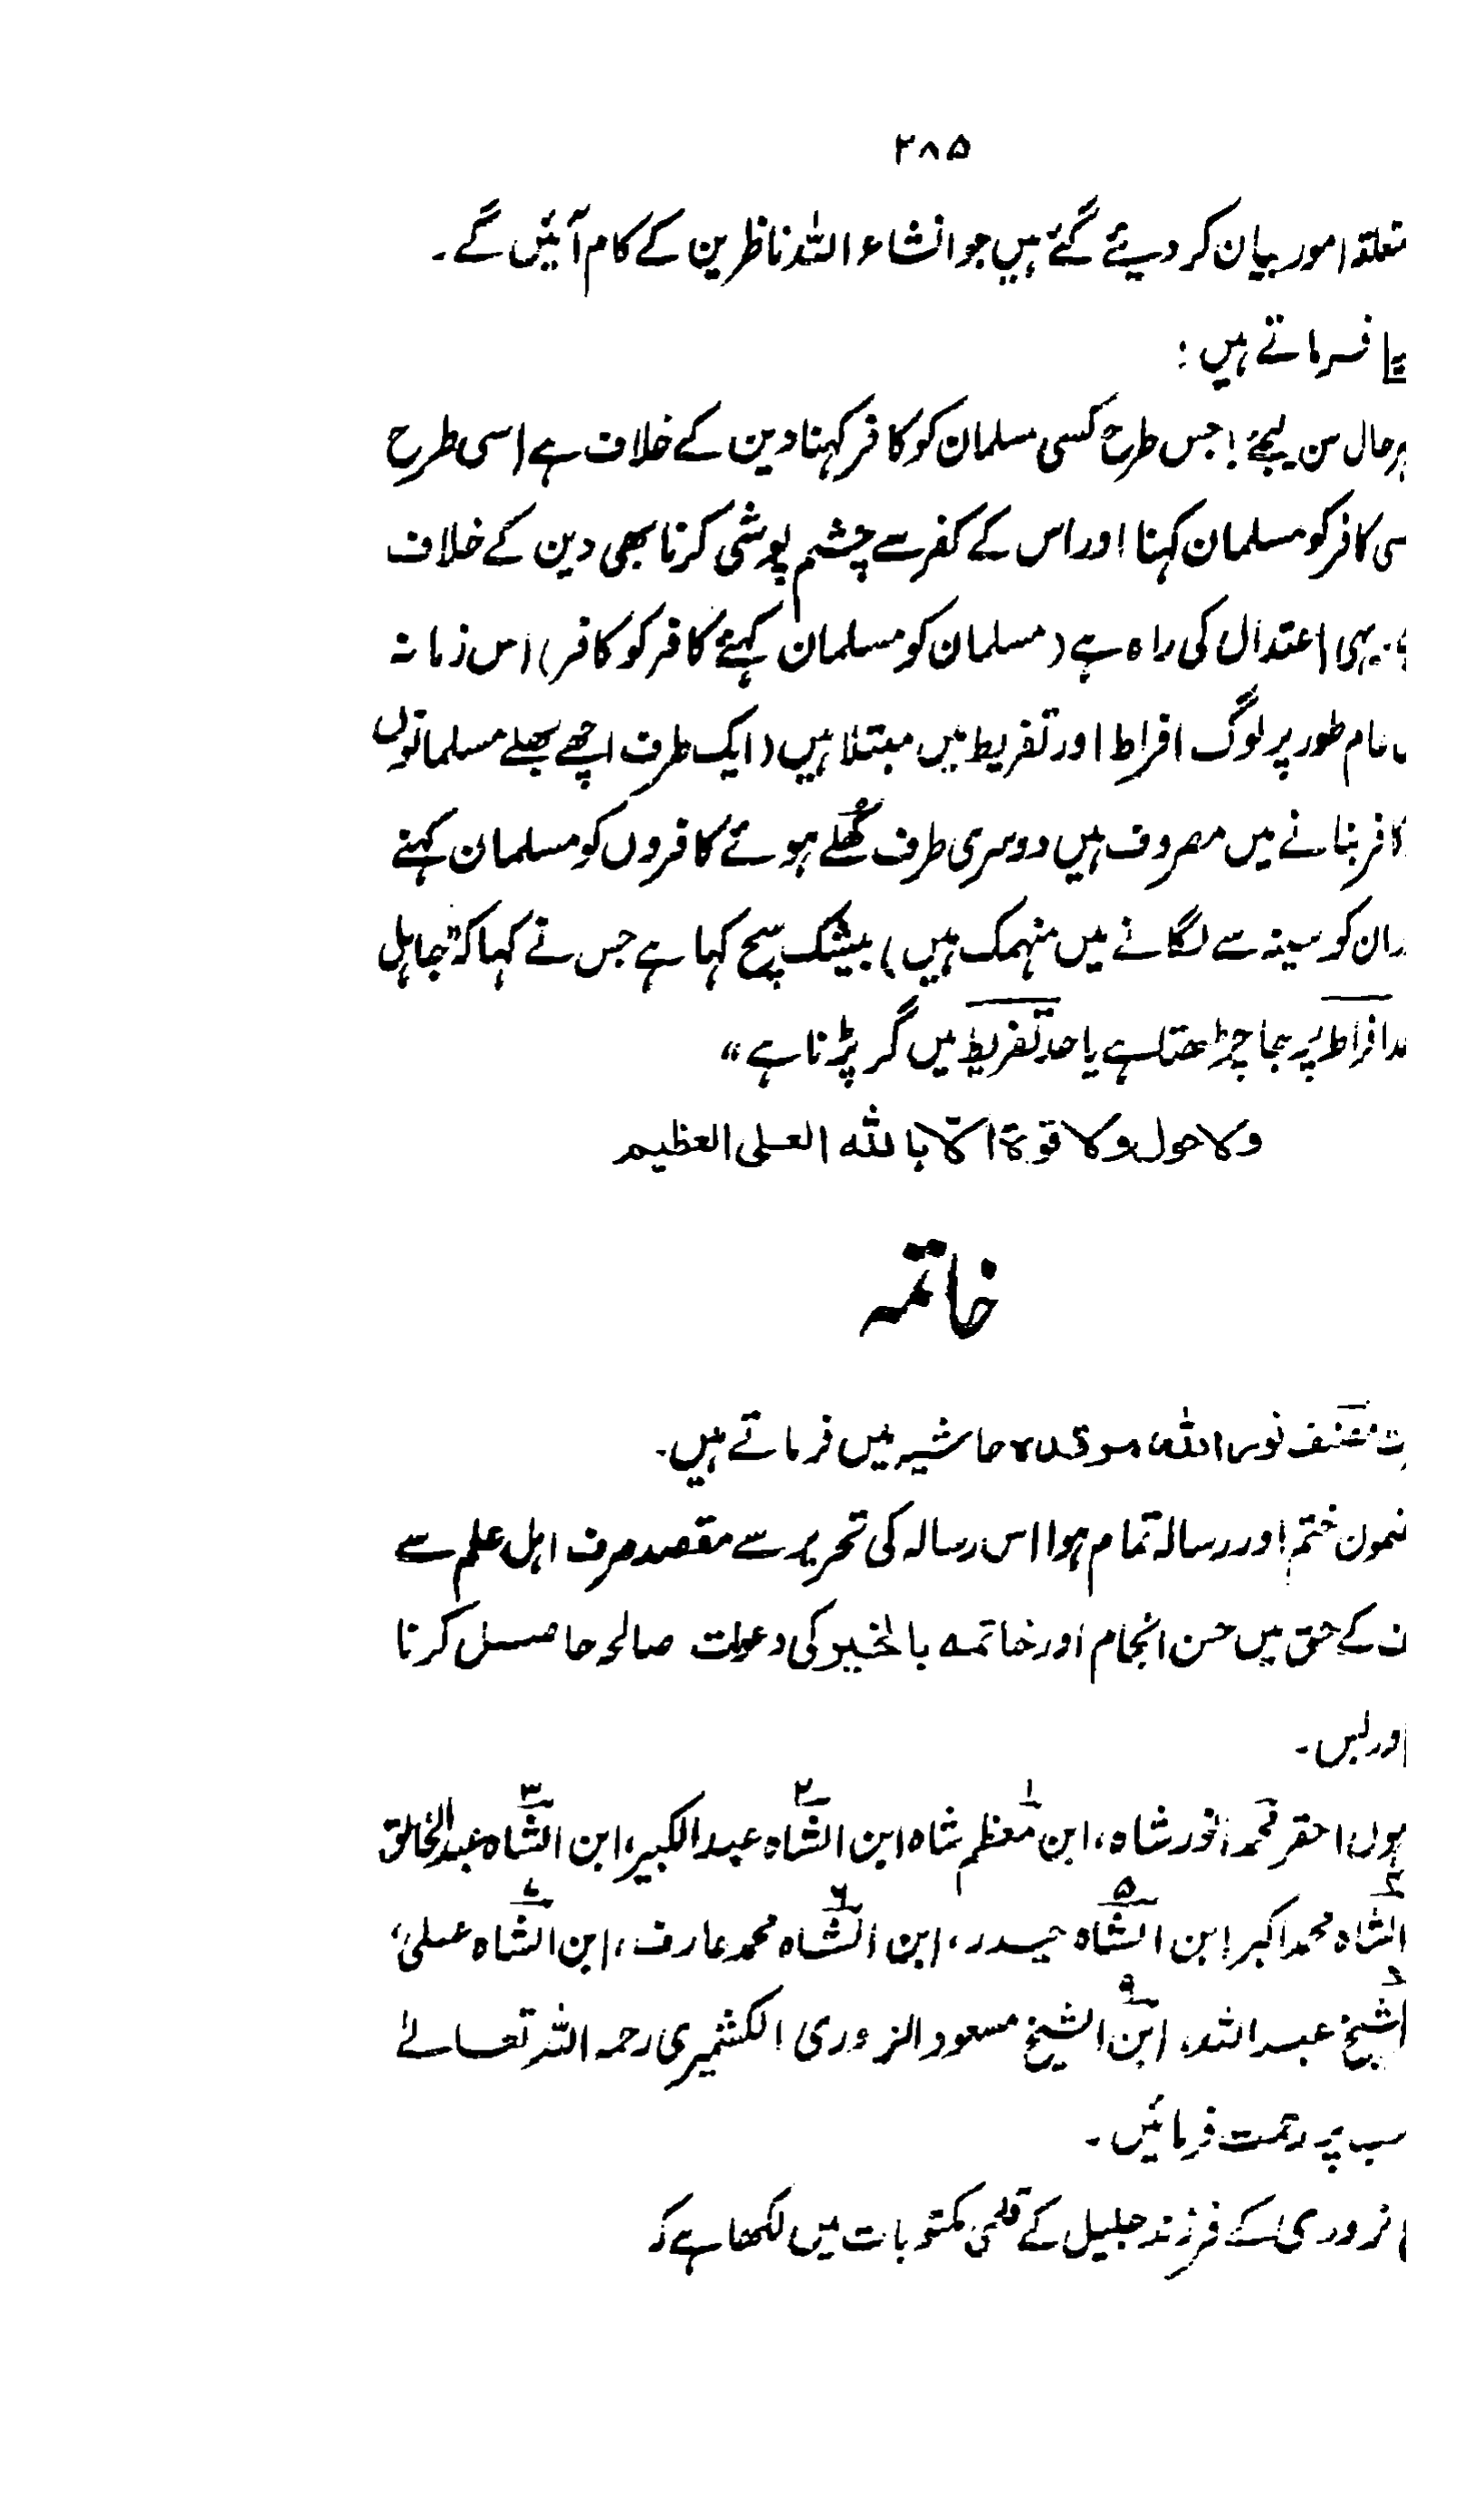 ۲۸۵
متعلقہ امور بیان کر دیئے گئے ہیں جو انشاء اللہ ناظرین کے کام آئیں گے۔
فرماتے ہیں :
ہرحال سن لیجئے! جس طرح کسی مسلمان کو کافر کہنا دین کے خلاف ہے اسی طرح
سی کافر کو مسلمان کہنا اور اس کے کفر سے چشم پوشی کرنا بھی دین کے خلاف
یہی اعتدال کی راہ ہے (مسلمان کو مسلمان کہئے کافر کو کافر) اس زمانہ
عام طور پر لوگ افراط اور تفریط میں مبتلا ہیں (ایک طرف اچھے بھلے مسلمانوں
کافر بنانے میں مصروف ہیں دوسری طرف کُھلے ہوئے کافروں کو مسلمان کہنے
ران کو سینہ سے لگانے میں منہمک ہیں) بیشک سچ کہا ہے جس نے کہا کہ "جاہل
حد افراط پر جا چڑھتا ہے یا حد تفریط میں گر پڑتا ہے"
ولا حول ولا قوۃ الّا باللہ العلی العظیم
خاتمہ
مصنف نور اللہ مرقدہ حاشیہ میں فرماتے ہیں۔
ضمون ختم اور رسالہ تمام ہوا اس رسالہ کی تحریر سے مقصد صرف اہل علم سے
کے حق میں حسن انجام اور خاتمہ بالخیر کی دعوات صالحہ حاصل کرنا
اور بس۔
ہوں احقر محمد انور شاہ، ابن ۱ معظم شاہ ابن ۲ الشاہ عبد الکبیر، ابن ۳ الشاہ عبد الخالق
۴ الشاہ محمد اکبر ابن ۵ الشاہ حیدر، ابن ۶ الشاہ محمد عارف، ابن ۷ الشاہ علی،
۸ الشیخ عبد اللہ، ابن ۹ الشیخ مسعود النروری الکشمیری رحمہ اللہ تعالیٰ
سب پر رحمت فرمائیں۔
نروری کے فرزند جلیل کے قلمی مکتوبات میں لکھا ہے کہ